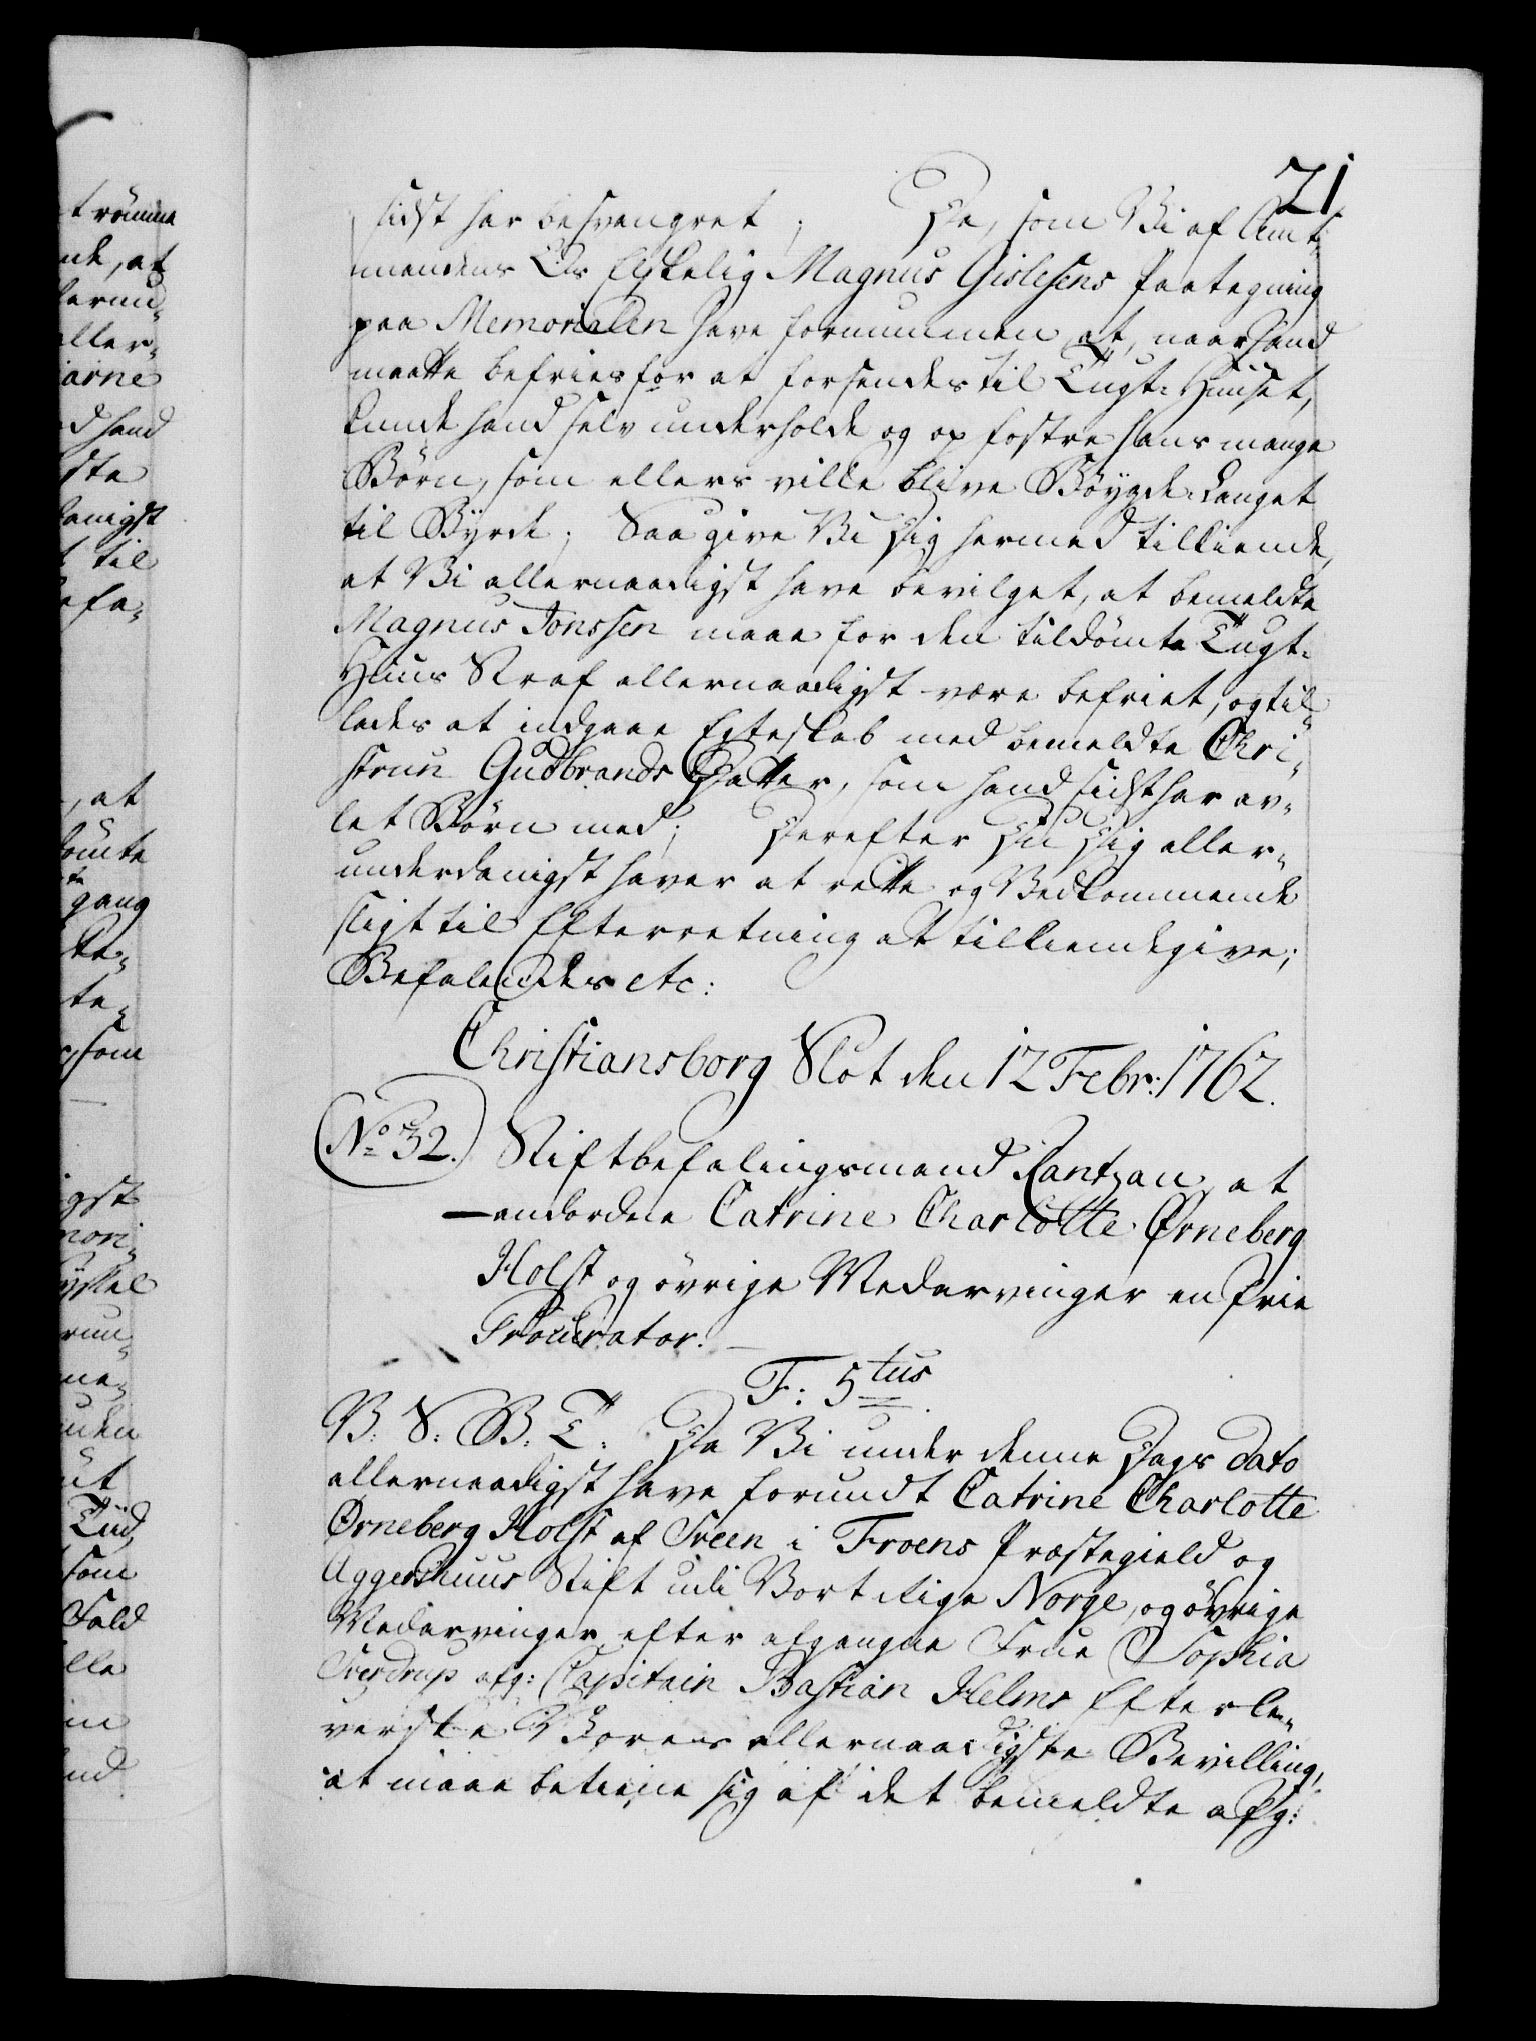 21
sidst har besvangret; Da, som Vi af Amt¬
mandens Os Elskelig Magnus Gislesens Paategning
paa Memorialen have fornummen at, naar hand
maatte befries for at forsendes til Tugt-Huuset,
kunde hand selv underholde og op fostre hans mange
Børn, som ellers ville blive Bøygde-Lauget
til Byrde; Saa give Vi Dig hermed tilkiende,
at Vi allernaadigst have bevilget, at bemeldte
Magnus Jonssen maae for den tildømte Tugt-
Huus Straf allernaadigst være befriet, og til¬
lades at indgaae Egteskab med bemeldte Chri¬
strun Gudbrands Datter, som hand sidst har av¬
let Børn med; Derefter Du Dig aller¬
underdanigst haver at rette og Vedkommende
sligt til Efterretning at tilkiendegive;
Befalendes etc:
Christiansborg Slot den 12 Febr: 1762.
No 32. Stiftbefalingsmand Rantzau, at
anordne Catrine Charlotte Ørneberg
Holst og øvrige Medarvinger en frie
Procurator.
F: 5tus
V: S: G: T: Da Vi under denne Dags Dato
allernaadigst have forundt Catrine Charlotte
Ørneberg Holst af Steen i Froens Præstegield og
Aggershuus Stift udi Vort Rige Norge, og øvrige
Medarvinger efter afgangne Frue Sophia
Sverdrup afg: Capitain Bastian Helms Efterle¬
verske Vores allernaadigste Bevilling,
at maae betiene sig af det bemeldte afg: